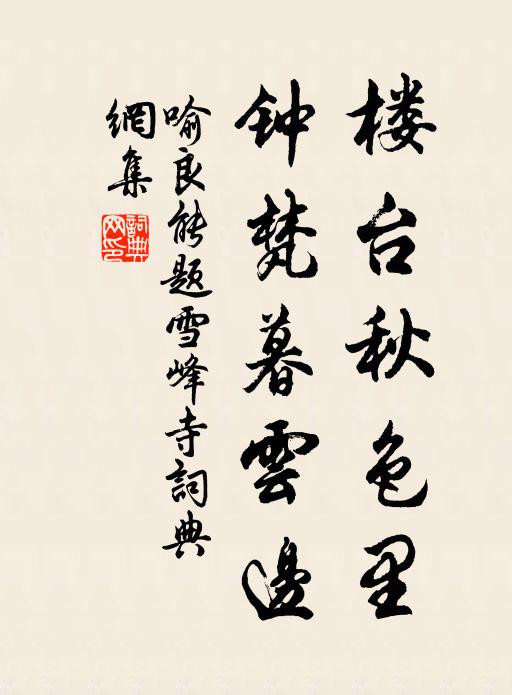 楼台秋色里
钟梵暮雲邊
喻良能题雪峰寺詞典
網集
詞典網印